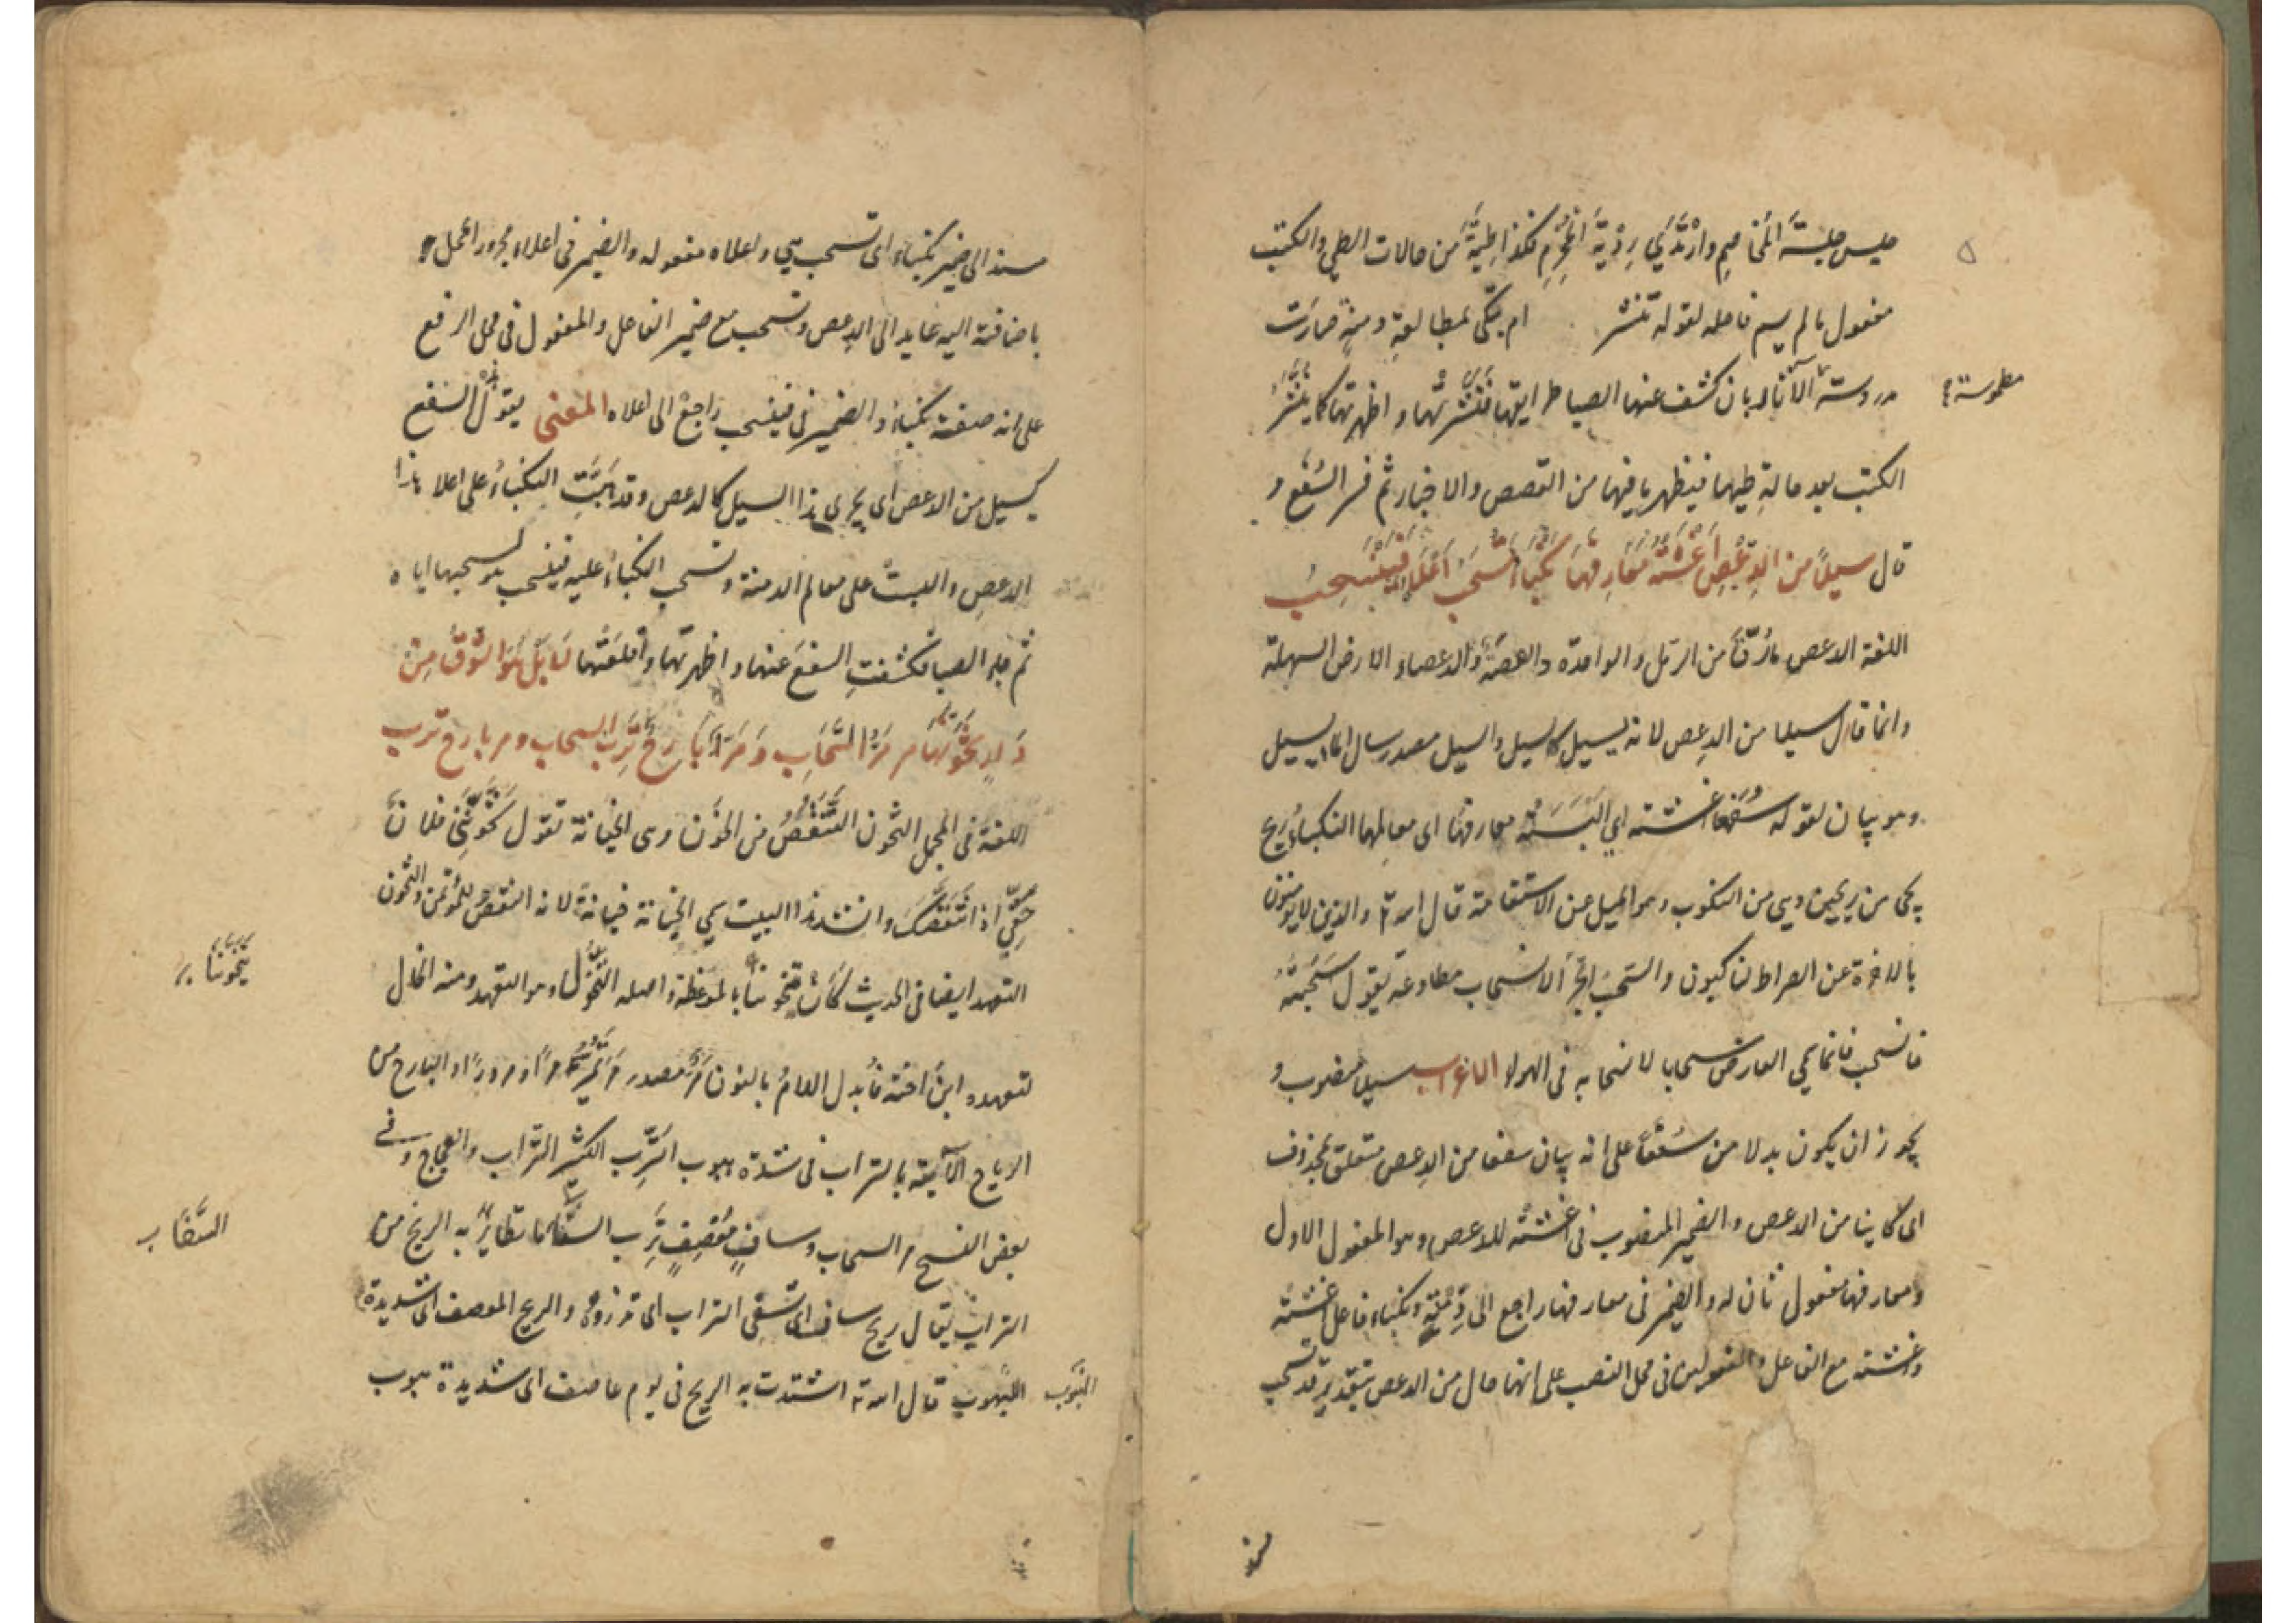 جلس جلسة المخاصم وارتدي رذية المجرم فكذا طية من حالات الطي والكتب
مفعول مالم يسم فاعله لقوله تنشر ام بكى لمطالعة دمنة صارت
مدروسة الآثار بان كشف عنها الصبا طرايقها فنشرتها واظهرتها كما ينشر
مطموسة
الكتب بعد حالة طيها فيظهر ما فيها من القصص والاخبار ثم فسر السفع و
قال سيلا من الدعص اغشته معارفها نكباء تسحب اعلاه فينسحب
اللغة الدعص مارق من الرمل والواحدة دعصة والدعصاء الارض السهلة
وانما قال سيلا من الدعص لانه يسيل كالسيل والسيل مصدر سال الماء يسيل
وهو بيان لقوله سفعا اغشته اي البسته معارفها اى معالمها النكباء ريح
يحى من ريحين وهي من النكوب وهو الميل عن الاستقامة قال الله تع والذين لا يؤمنون
بالاخرة عن الصراط لناكبون والسحب الجر الانسحاب مطاوعه يقول سحبته
فانسحب فانما سمي العارض سحابا لانسحابه فى الهواء الاعراب سيلا منصوب و
يجوز ان يكون بدلا من سفعا على انه بيان سفعا من الدعص متعلق بمحذوف
اى كاينا من الدعص والضمير المنصوب فى اغشته للدعص وهو المفعول الاول
ومعارفها مفعول ثان له والضمير فى معارفها راجع الى دمنة ونكباء فاعل اغشته
واغشته مع الفاعل والمفعولين فى محل النصب على انها حال من الدعص بتقدير قد تسحب
مسند الى ضمير نكباء اى تسحب هي واعلاه مفعوله والضمير فى اعلاه مجرور المحل
باضافته اليه عايد الى الدعص وتسحب مع ضمير الفاعل والمفعول فى محل الرفع
على انه صفة نكباء والضمير فى فينسحب راجع الى اعلاه المعنى يقول السفع
كسيل من الدعص اى يجرى هذا السيل كالدعص وقد هبت النكباء على اعلا هذا
الدعص والبست على معالم الدمنة وتسحب النكباء عليه فينسحب هو لسحبها اياه
ثم جاء الصبا فكشفت السفع عنها واظهرتها وقلعتها لا بل هو الشوق من
دار تخونها مر السحاب ومر بارح ترب السحاب ومر بارح ترب
اللغة فى المجمل التخون التنقص من الخون وهى الخيانة تقول تخونني فلان
حقي اذا تنقصك وانشد هذا البيت سمي الخيانة خيانة لانه انتقص للمؤتمن والتخون
التعهد ايضا فى الحديث كان يتخوننا بالموعظة واصله التخول وهو التعهد ومنه الخال
يتخوننا
لتعهده ابن اخته فأبدل اللام بالنون مر مصدر مر يمر مرا ومرورا والبارح من
الرياح الآتية بالتراب فى شدة هبوب الترب الكثير التراب والعجاج وفى
بعض النسخ مر السحاب وساف معصف ترب السفا ما تطاير به الريح من
السحاب
التراب يقال ريح ساف اى تسفى التراب اى تذروه والريح المعصف اى شديدة
الهبوب الهبوب قال الله تع اشتدت به الريح فى يوم عاصف اى شديدة هبوب